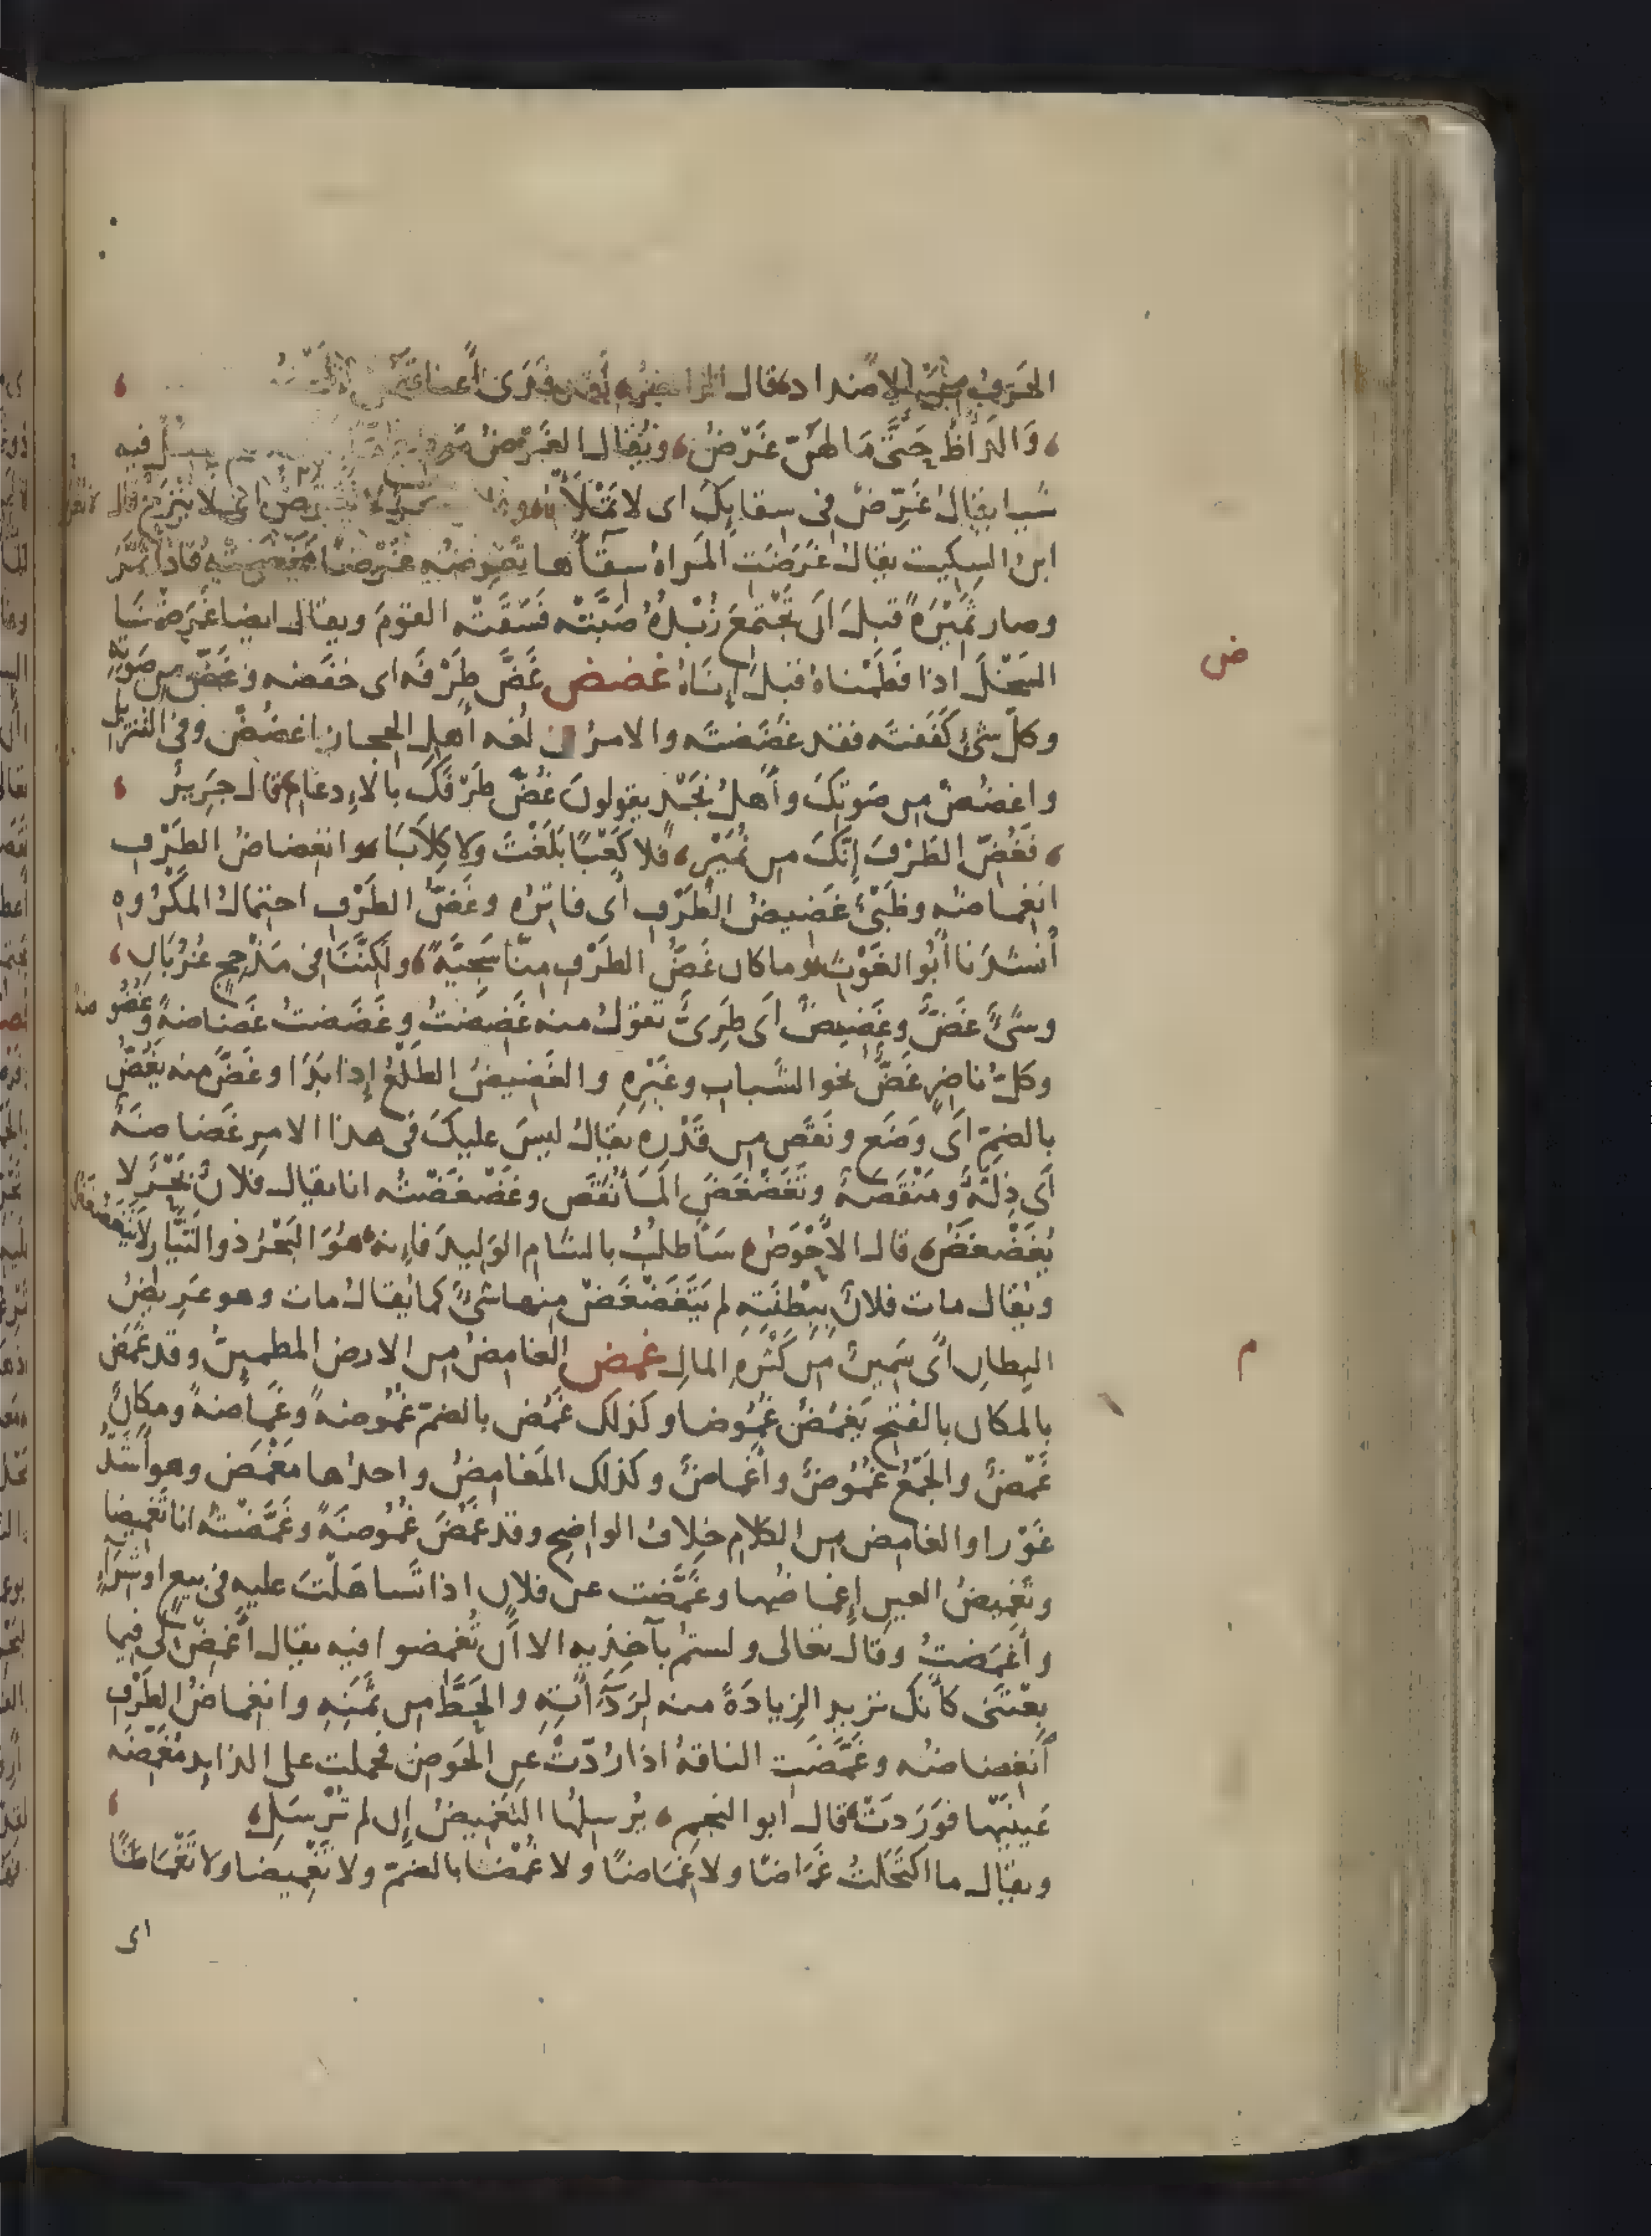 الحَرْفُ من الاضداد قال الراجز لقد فَدَى أعناقَهُنَّ المحضُ
وَالدَأْظُ حَتَّى مَا لَهُنَّ غَرْضُ ويُقال الغَرْضُ فيه
شيا يقال غَرِّضْ فى سقايِكَ اى لا تَمْلَأْه وفلان بحر لا يُغَرَّضُ اى لا يُنْزَحُ قال
ابن السِكيت يقال غَرَضَت المَراةُ سِقَآءَها تَغْرِضُه غَرْضًا مخضته فاذا ثَمَّرَ
وصار ثَمِيْرَةً قبل اَن يَجْتَمِعَ زُبْدُهُ صَبَّتْه فَسَقَتْه القومَ ويقال ايضا غَرَضْنَا
السَخْلَ اذا فَطَمْناهُ قبلَ إِنَاهُ غضض غَضَّ طَرْفَه اى خفَضه وغَضَّ من صَوتِهِ
وكلّ شئٍ كَفَفتَه فقد غَضَضتَه والامرُ لغه أهلِ الحجاز اغضُضْ وفى التنزيل
واغضُضْ من صَوتِكَ وأَهلُ نَجْدٍ يقولونَ غُضَّ طَرْفَكَ بالإِدغام قال جَرِيرٌ
فَغُضِّ الطَرْفَ إِنَّكَ من نُمَيْرٍ فلا كَعْبًا بَلَغْتَ ولا كِلاَبَا وانغضاضُ الطَرْفِ
انغماضُه وظَبْىٌ غَضِيضُ الطَرْفِ أى فاتِرُه وغَضُّ الطَرْفِ احتمالُ المَكْرُوهِ
أنشدَنا أبُو الغَوْثِ وما كان غَضُّ الطَرْفِ مِنَّا سَجِيَّةً ولَكِنَّنَا فى مَذْحِجٍ غُرُبَانِ
وشىءٌ غَضٌّ وغَضِيضٌ أَى طَرِىٌّ تقولُ منه غَضِضتُ وغَضَضتُ غَضاضةً وغُضُوضةً
وكلُّ ناضِرٍ غَضٌّ نحو الشَباب وغَيْرِهِ والغَضِيضُ الطَلْعُ إِذا بَدَا وغَضَّ منه يَغُضُّ
بالضمِّ أَى وَضَع ونَقَص من قَدْرِه يقالُ ليسَ عليكَ فى هذا الامرِ غَضاضَةٌ
أَى ذِلّةٌ ومَنْقَصةٌ وتَغَضْغَضَ المَآءُ نَقَص وغَضْغَضْتُه انا يقال فلانٌ بَحْرٌ لا
يُغَضْغَضُ قال الأحْوَصُ سَأَطلُبُ بالشَام الوَلِيدَ فإِنه هُوَ البَحْرُ ذو التَيَّارِ لا يَتَغَضْغَضُ
ويُقال مات فلانٌ بِبِطْنَتِه لم يَتَغَضْغَضْ منها شىْءٌ كما يُقالُ مات وهو عَرِيضُ
البِطانِ أَى سَمِينٌ من كَثْرَةِ المالِ غمض الغامِضُ من الارض المطمئنُّ وقد غَمَضَ
بالمكان بالفتح يَغمُضُ غُمُوضا وكذلك غَمُض بالضمّ غُمُوضةً وغَمَاضةً ومكانٌ
غَمْضٌ والجَمْعُ غُمُوضٌ وأَغماضٌ وكذلك المَغامِضُ واحدُها مَغْمَض وهو أَشَدُّ
غَوْرا والغامِض من الكلام خِلافُ الواضِح وقد غَمُضَ غُمُوضَةً وغَمَّضْتُه انا تَغمِيضا
وتَغمِيضُ العينِ إِغماضُها وغَمَّضت عن فلان اذا تَساهَلْتَ عليه فى بيعٍ او شِرَآءٍ
وأَغمَضتُ وقال تعالى ولستم بآخِذيه الا أَن تُغمضوا فيه يقال أَغمِضْ لى فيما
بِعْتَنى كأنّك تريد الزِيادَةَ منه لِرَدَآءَتِهِ والحَطَّ من ثَمَنِهِ وانغِماضُ الطَرْفِ
أنغِضاضُه وغَمَّضَتِ الناقةُ اذا رُدَّتْ عن الحَوضِ فحملت على الذايد مُغَمِّضَةً
عَينَيْها فوَرَدَتْ قال ابو النجم يُرسِلُها التَغمِيضُ إِن لم تُرْسَلِ
ويقال ما اكتَحَلْتُ غَمَاضًا ولا غِمَاضًا ولا غُمْضا بالضمّ ولا تَغْمِيضا ولا تَغْمَاضًا
اى
ض
م